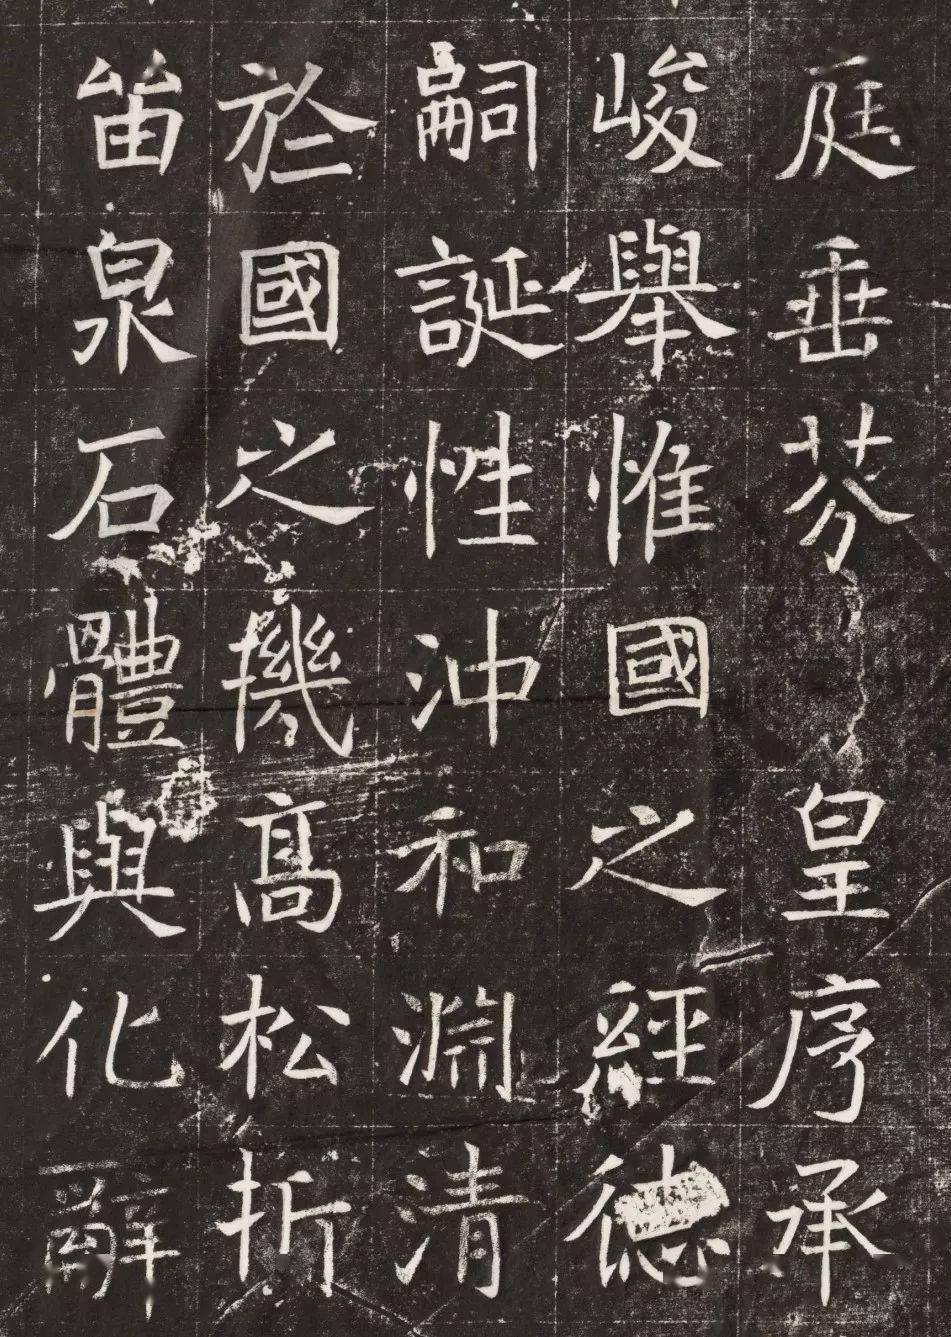 庭垂芬　皇序承
峻舉惟國之經德
嗣誕性沖和淵清
於國之機髙松折
泉石體與化辭